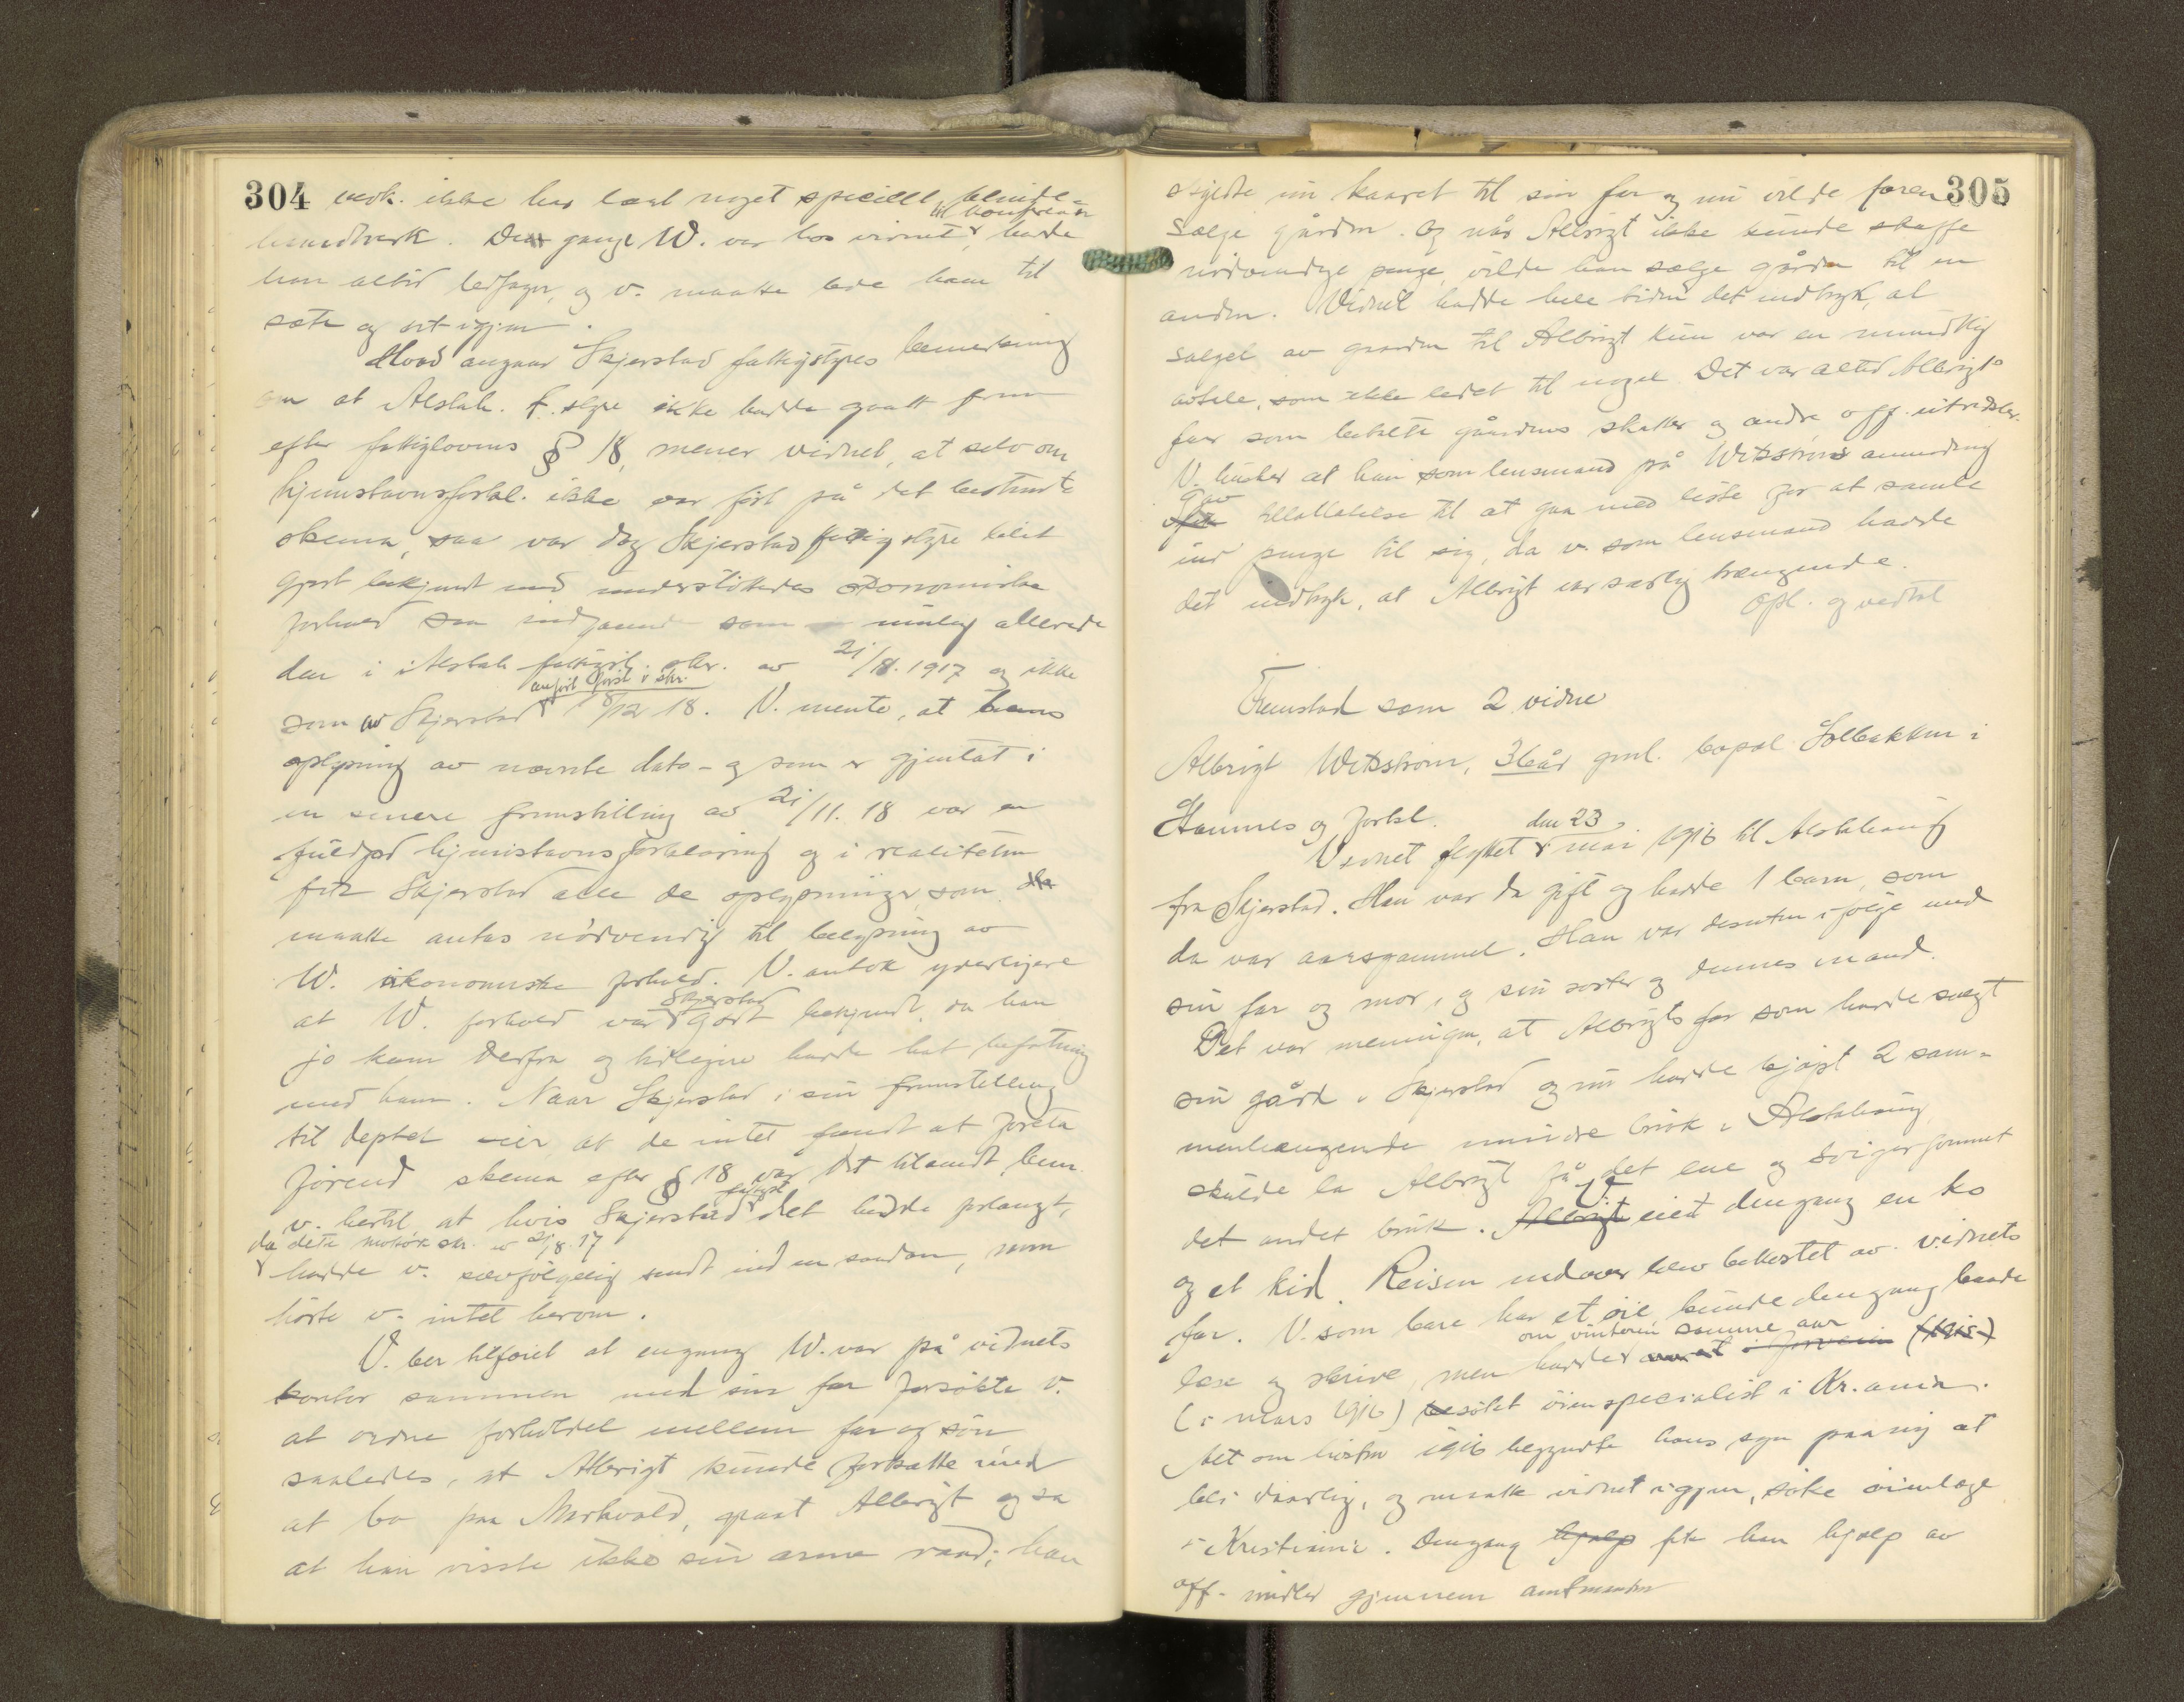 304
vedk. ikke har lært noget specielt blinde-
til konferanse
haandverk. Den gange W. var hos vidnet, hadde
han altid ledsager, og v. maatte lede ham til
sæte og ut igjen.
Hvad angaar Skjerstad fattigstyres bemerkning
om at Alstah. f.styre ikke hadde gaatt frem
efter fattiglovens § 18, mener vidnet, at selv om
hjemstavnsforkl. ikke var ført på det bestemte
skema, saa var dog Skjerstad fattigstyre blit
gjort bekjendt med understøttedes økonomiske
forhold saa indgaaende som mulig allerede
da i Alstah. fattigst. skr. av 21/8. 1917 og ikke
anført først i skr.
som av Skjerstad 18/12 18. V. mente, at hans
oplysning av nævnte dato - og som er gjentat i
en senere fremstilling av 21/11. 18 var en
fuldgod hjemstavnsforklaring og i realiteten
fik Skjerstad alle de oplysninger, som
maatte antas nødvendig til belysning av
W. økonomiske forhold. V. antok yderligere
Skjerstad
at W. forhold var godt bekjendt, da han
jo kom derfra og tidligere hadde hat befatning
med ham. Naar Skjerstad i sin fremstilling
til deptet sier, at de intet fandt at foreta
førend skema efter § 18 var det tilsendt, bem.
v. hertil at hvis Skjerstad det hadde forlangt,
da dette motok skr. av 21/8. 17
hadde v. selvfølgelig sendt ind en saadan, men
hørte v. intet herom.
V. ber tilføiet at engang W. var på vidnets
kontor sammen med sin far forsøkte v.
at ordne forholdet mellem far og søn
saaledes, at Albrigt kunde fortsætte med
at bo paa Markvold, graat Albrigt og sa
at han visste ikke sin arme raad; han
305
skyldte nu kaaret til sin far og nu vilde faren
sælge gården. Og når Albrigt ikke kunde skaffe
nødvendige penge, vilde han sælge gården til en
anden. Vidnet hadde hele tiden det indtryk, at
salget av gaarden til Albrigt kun var en mundtlig
avtale, som ikke ledet til noget. Det var altid Albrigts
far som betalte gaardens skatter og andre off. utredsler.
V. husker at han som lensmand på Wedstrøms anmodning
gav
tillatelse til at gaa med liste for at samle
ind penge til sig, da v. som lensmand hadde
det indtryk, at Albrigt var særlig trængende.
Opl. og vedtat
Fremstod som 2 vidne
Albrigt Wedstrøm, 36 år gml. bopæl Solbakken i
Hamnes og forkl.
den 23
Vidnet flyttet mai 1916 til Alstahaug
fra Skjerstad. Han var da gift og hadde 1 barn, som
da var aarsgammel. Han var desuten i følge med
sin far og mor, og sin søster og dennes mand.
Det var meningen, at Albrigts far som hadde solgt
sin gård i Skjerstad og nu hadde kjøpt 2 sam-
menhængende mindre bruk i Alstahaug
skulde la Albrigt få det ene og svigersønnen
V.
det andet bruk. Albrigt eiet dengang en ko
og et kid. Reisen nedover blev bekostet av vidnets
far. V. som bare har et øie, kunde dengang baade
om vinteren samme aar
læse og skrive, men hadde
(i mars 1916) besøkt øienspecialist i Kr.ania.
Alt om høsten 1916 begyndte hans syn paany at
bli daarlig, og maatte vidnet igjen, søke øienlæge
i Kristiania. Dengang hjælp fik han hjælp av
off. midler gjennem amtmanden